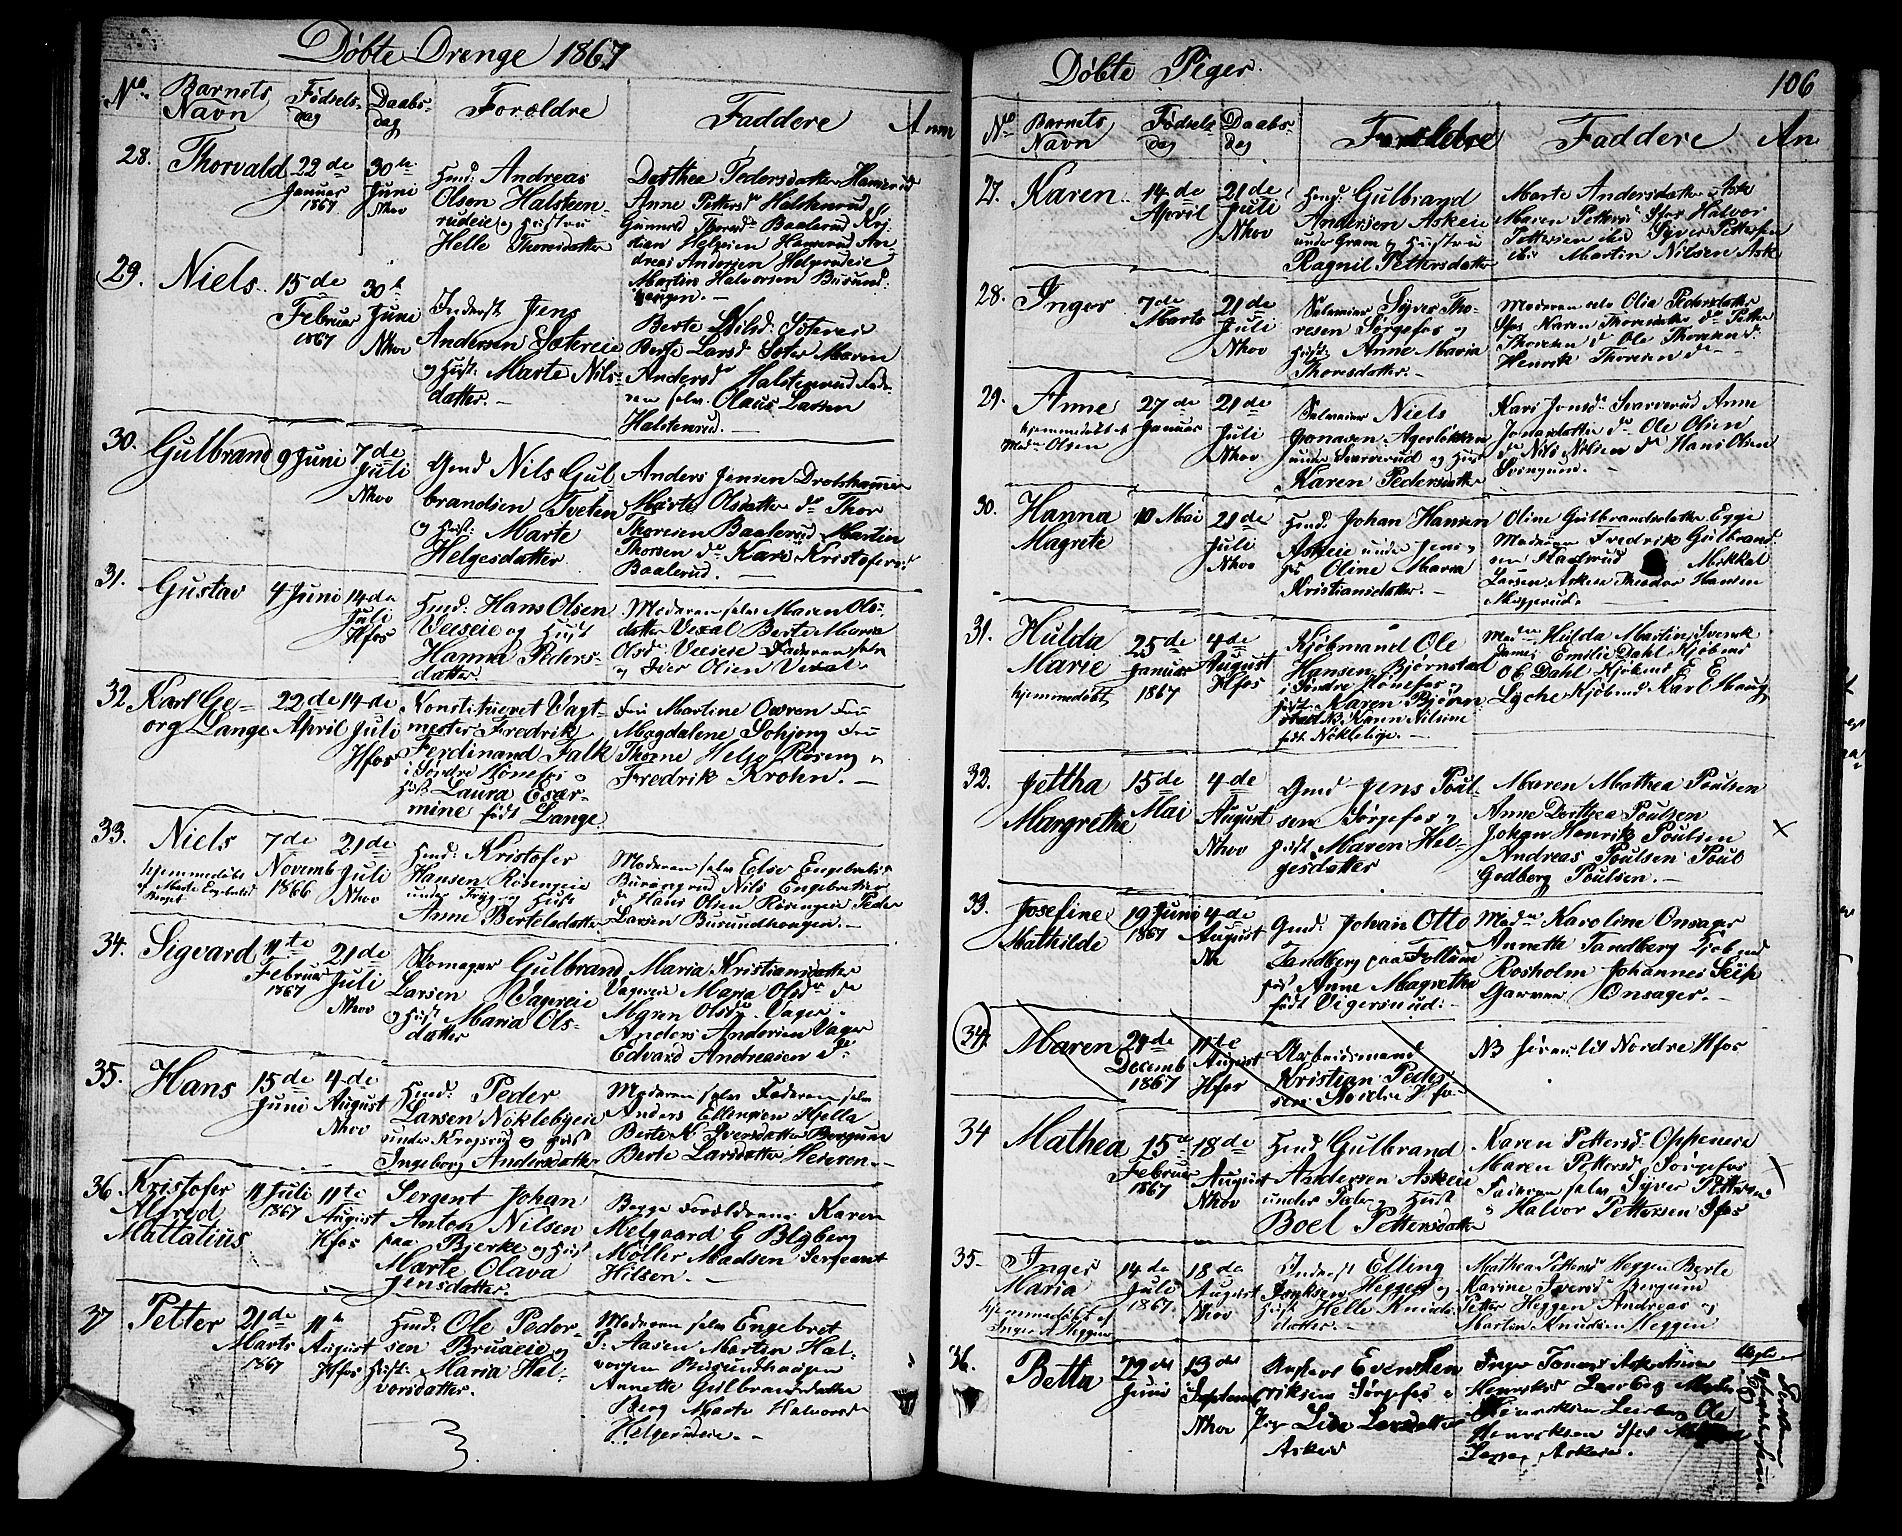 Døbte Drenge 1867
No. Barnets Navn Fødsels-dag Daabs-dag Forældre Faddere Anm
28. Thorvald 22de Januar 1867 30te Juni Nhov
Hmd: Andreas
Olsen Halsteen-
rudeie og Hustru
Helle Thoresdatter
Dorthea Pedersdatter Hamerud
Anne Petters Halstenrud
Gunnild Thorsd Baalerud Kri
stian Helgesen Hamerud An
dreas Andersen Helgerudeie
Martin Halvorsen Busund
hengen.
29. Niels 15de Februar 1867 30te Juni Nhov
Inderst Jens
Andersen Sætereie
og Hust: Marte Nils-
datter.
Berte Nilsd: Sætereie
Berte Larsd Sæter Maren
Andersd Halstenrud Fade-
ren selv. Olaus Larsen
Halstenrud.
30. Gulbrand 9 Juni 7de Juli Nhov
Gmd Nils Gul
brandsen Tveten
og Hust: Marte
Helgesdatter
Anders Jensen Drolshammer
Marte Olsdatter do Thor
Thoresen Baalerud Martin
Thorsen do Kari Kristofersd
Baalerud.
31. Gustav 4 Juni 14de Juli Hfos
Hmd: Hans Olsen
Veiseie og Hust
Hanna Peders-
datter
Moderen selv Maren Ols-
datter Vexal Berte Maria
Olsd Veiseie Faderen selv
og Iver Olsen Vexal.
32 Karl Ge-
org Lange 22de April 14de Juli Hfos
Konstitueret Vagt-
mester Fredrik
Ferdinand Falk
i Søndre Hønefos og
Hust: Laura Exar-
mine født Lange.
Fru Martine Owren Fru
Magdalene Sohjeng Fru
Thorne Helge Røseng og
Fredrik Krohn.
33. Niels 7de Novemb 1866 21de Juli Nhov
hjemmedøbt
af Marte Engebretsd
Hmd: Kristofer
Hansen Røsengeie
under Tryg og Hust
Anne Bertelsdatter
Moderen selv Else Engebretsd
Burangrud Nils Engebretsen
do Hans Olsen Røsengeie Peder
Larsen Busundhengen.
34. Sigvard 11te Februar 1867 21de Juli Nhov
Skomager Gulbrand
Larsen Vagereie
og Hust Maria Ols-
datter
Maria Kristiansdatter
Vagereie Maria Olsdr do
Maren Olsdr Vager.
Anders Andersen Vager
Edvard Andreasen do
35. Hans 15de Juni 4de August Nhov
Hmd: Peder
Larsen Nøklebyeie
under Krogsrud og Hust
Ingeborg Andersdatter
Moderen selv Faderen selv
Anders Ellingsen Hjella
Berte K Iversdatter Borgum
Berte Larsdatter Henren.
36 Kristofer
Alfred
Mattatius 11 Juli 1867 11te August Hfos
Sergent Johan
Anton Nilsen
paa Bjerke og Hust
Marte Olava
Jensdatter.
Begge Forældrene Karen
Melgaard G Blyberg
Møller Madsen Sergeant
Hilsen.
37 Petter 21de Marts 1867 11te August Hfos
Hmd: Ole Peder-
sen Bruaeie og
Hust: Maria Hal-
vorsdatter.
Moderen selv Engebret
P: Aasen Martin Hal-
vorsen Busundhaugen
Annette Gulbrandsdatter
Berg Marte Halvorsd
Helgerudeie.
Døbte Piger. 106
No Barnets Navn Fødsels dag Daabs-dag Forældre Faddere An
27. Karen 14de April 21de Juli Nhov
Hmd: Gulbrand
Andersen Askeie
under Gram og Hustru
Ragnil Pettersdatter
Marte Andersdatter Ask
Maren Pettersd Hfos Halvor
Pettersen ibd Syver Pettersen
ibd Martin Nilsen Ask
28. Inger 7de Marts 21de Juli Nhov
Selveier Syver Tho-
resen Sørgefos og
Hust: Anne Maria
Thoresdatter.
Moderen selv Olia Pedersdatter
Hfos Karen Thoresdatter do Petter
Thoresen do Ole Thoresen d:
Henrik Thoresen do
29. Anne 27de Januar 21de Juli Nhov
hjemmedøbt af
Mdm Olsen
Selveier Niels
Jonasen Agerløkken
under Svarverud og Hust
Karen Pedersdatter
Kari Jonsd Svarverud Anne
Jonasdatter do Ole Olsen
do Nils Nilsen do Hans Olsen
Svingrum.
30. Hanna
Magrete 10 Mai 21de Juli Nhov
Hmd: Johan Hansen
Askeie under og
Hs Oline Maria
Kristiansdatter.
Oline Gulbrandsdatter Egge
Moderen Fredrik Gulbrand
sen Mikkel
Larsen Asken Theodor Hansen
31. Hulda
Marie 25de Januar 1867 4de August Hfos
hjemmedøbt
Kjøbmand Ole
Hansen Bjørnstad
i Søndre Hønefos og
Hust: Karen Bjørn
stad NB: Karen Nilsine
født Nøklebye.
Mdm Hulda Martin Svensk
James Emilie Dahl Kjøbmd
O G Dahl Kjøbmd E E
Lyche Kjøbmd Kar E Haug
32. Jettha
Margrethe 15de Mai 4de August Nhov
Gmd Jens Poul-
sen Sørgefos og
Hust: Maren Hel-
gesdatter
Maren Mathea Poulsen
Anne Dorthea Poulsen
Johan Henrik Poulsen
Andreas Poulsen Poul
Gedberg Poulsen.
X
33. Josefine
Mathilde 19 Juni 1867 4de August Nh
Gmd: Johan Otto
Tandberg paa Follum
Hs: Anne Magrethe
født Vigersund:
Mdm Karoline Onsager
Annette Tandberg Kjøbmd
Rosholm Johannes Seip
Garver Onsager.
(34) Maren 29de Decemb 1867 11te August Hfos
Arbeidsmand
Kristian Peder
sen Nordre Hfos
NB hører til Nordre Hfos
34 Mathea 15de Februar 1867 18de August Nhov
Hmd Gulbrand
Andersen Askeie
under Pals og Hust
Boel Pettersdatter
Karen Pettersd. Oppeneie
Maren Pettersd Sørgefos
Faderen selv Syver Pettersen
og Halvor Pettersen Hfos
35. Inger
Maria 14de Juli 1867. 18de August Nhov
hjemmedøbt af
Inger A Heggen
Inderst Elling
Heggen og
Hust Helle Knuds-
datter.
Mathea Pettersd Heggen Berte
Karine Iversd Bergum
Petter Heggen Andreas og
Martin Knudsen Heggen
36. Betta 22de Juni 13de September Nhov
Even Sten
Eriksen Sørgefos
Lise Larsdatter
Askeie
Inger Jonasd Ask Anne
Henriksd Leerberg
Henriksen Leerberg Ole
Henriksen Hfos
Larsen Askeie.